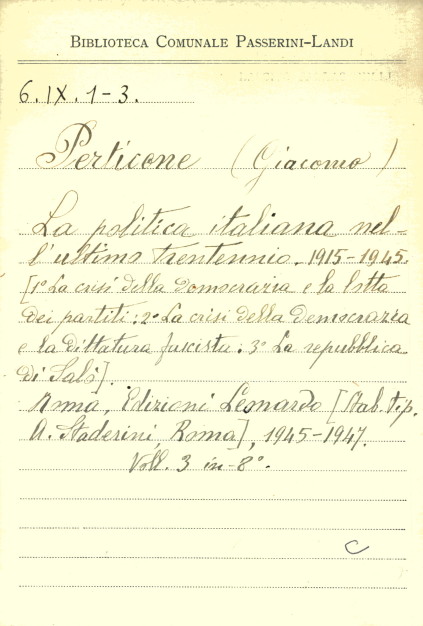 BIBLIOTECA COMUNALE PASSERINI-LANDI
6.IX.1-3.
Perticone (Giacomo)
La politica italiana nel-
l'ultimo trentennio. 1915-1945.
[1° La crisi della democrazia e la lotta
dei partiti: 2° La crisi della democrazia
e la dittatura fascista: 3° La repubblica
di Salò].
Roma, Edizioni Leonardo [Stab. tip.
A. Staderini, Roma], 1945-1947.
Voll. 3 in-8°.
C